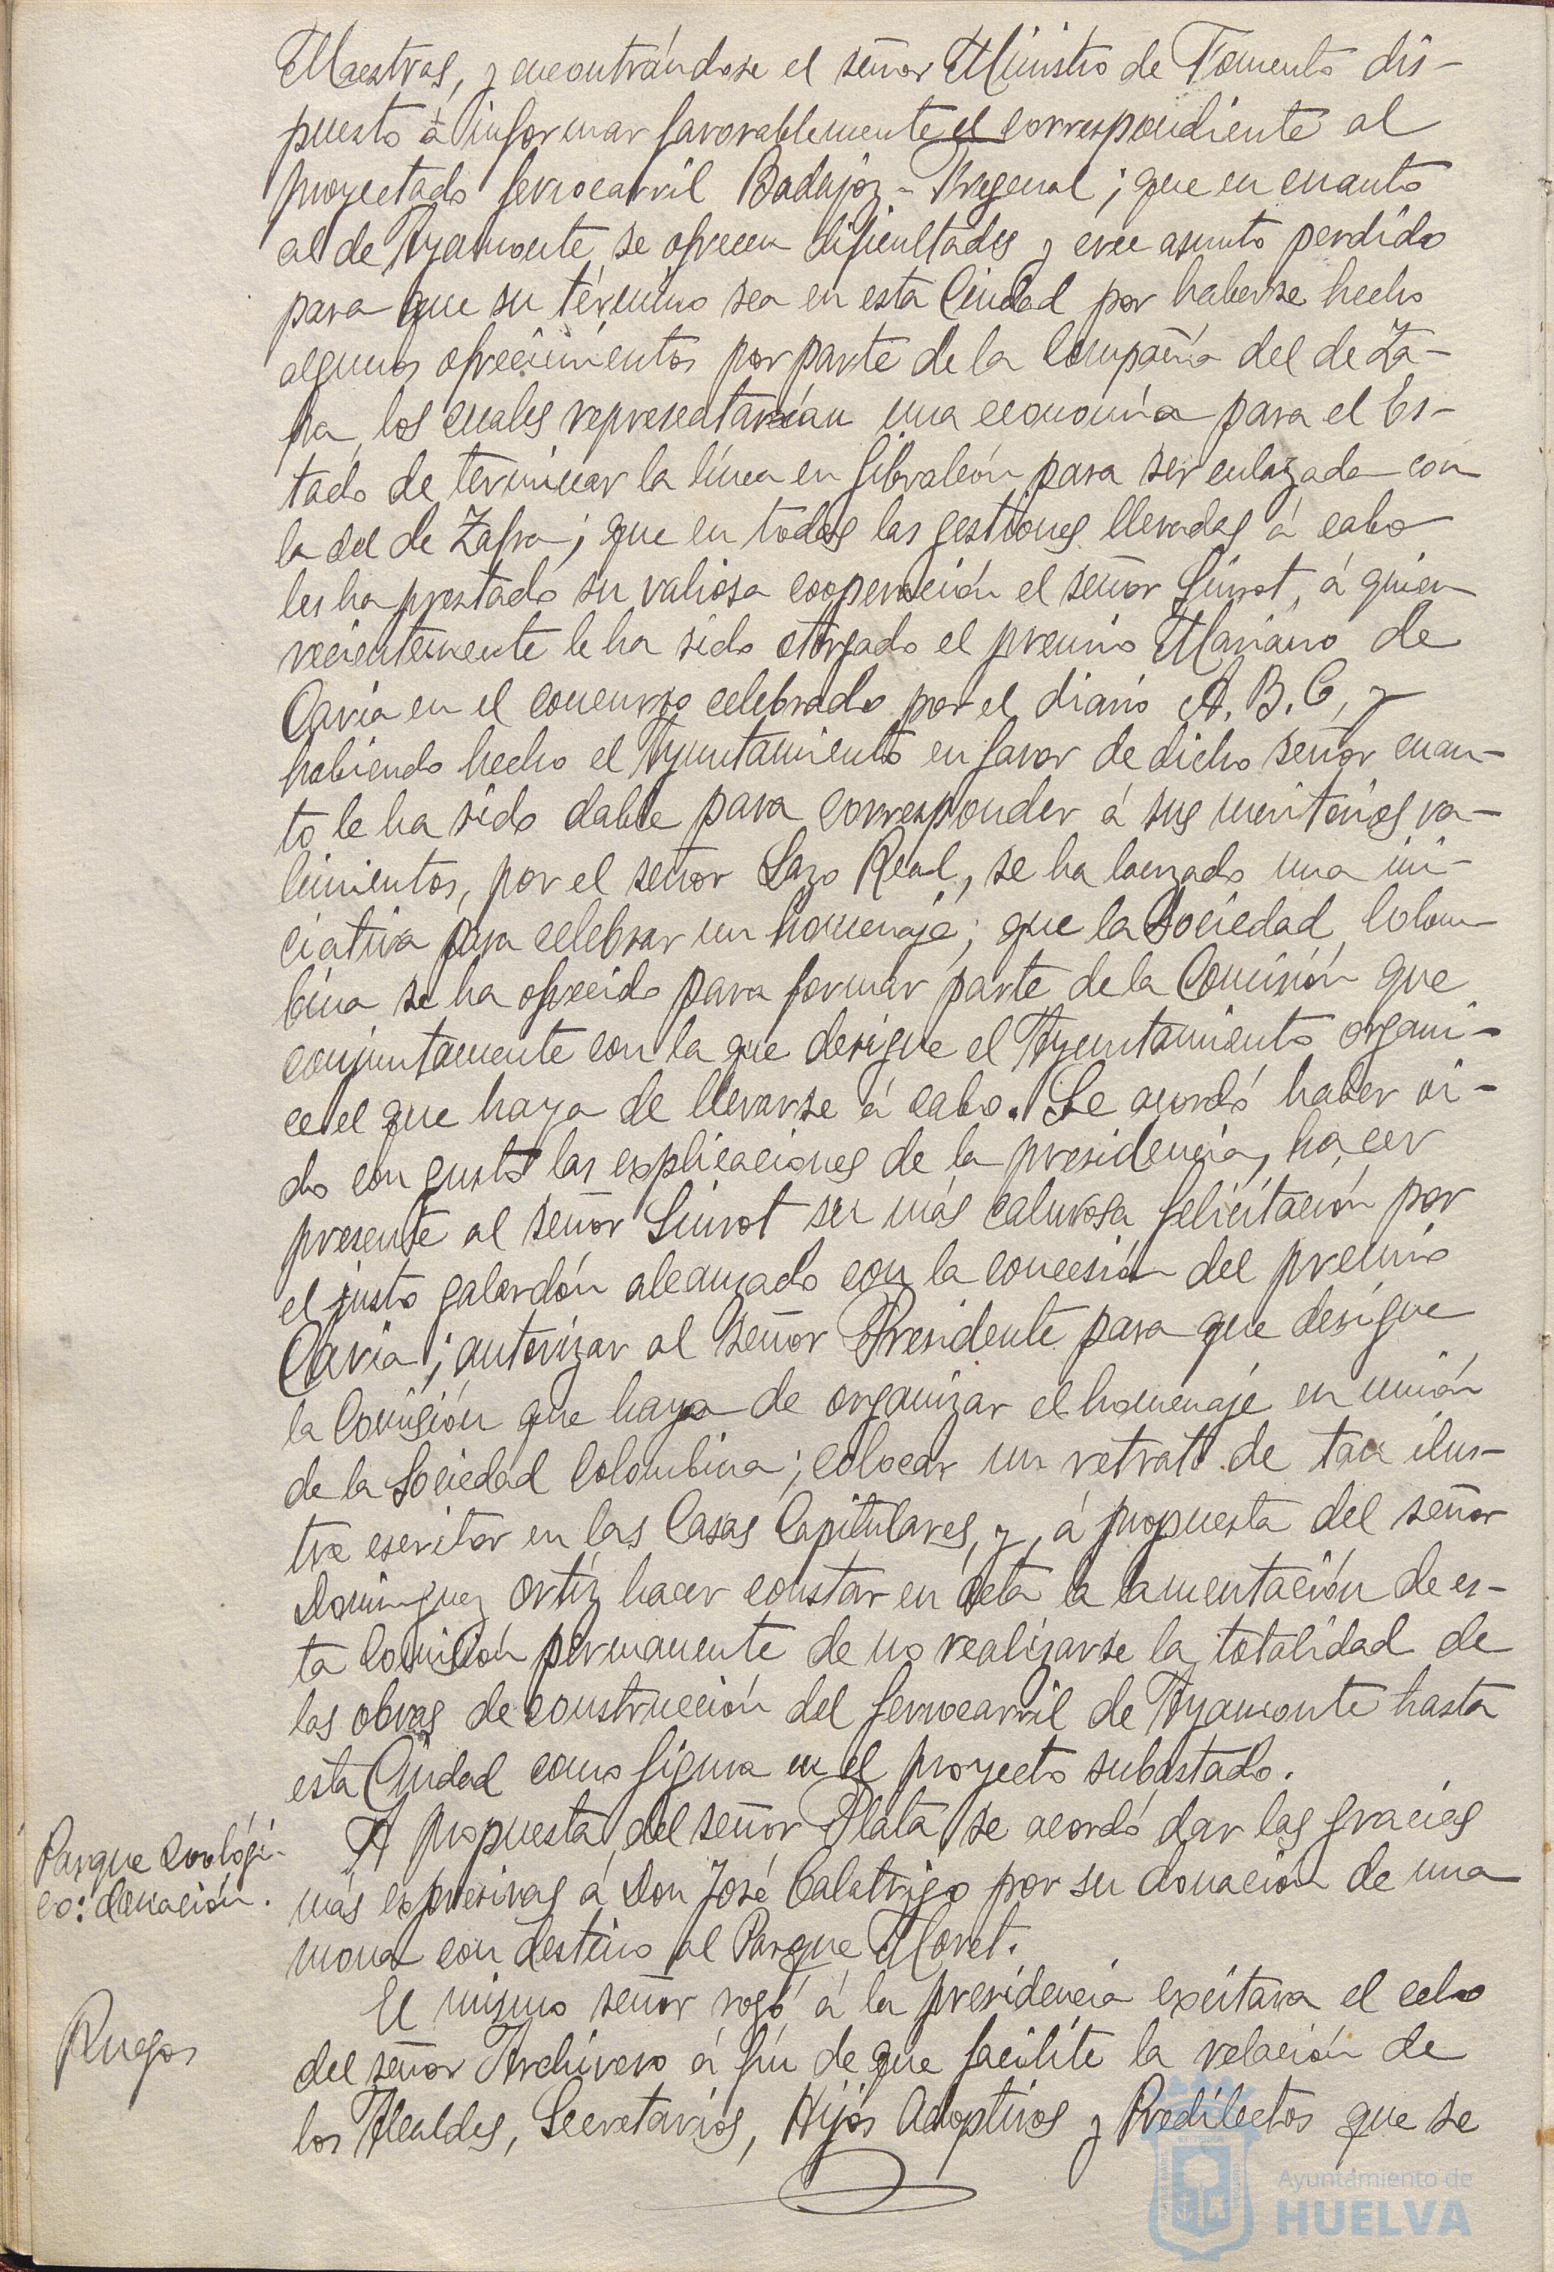 Maestras, y encontrándose el señor Ministro de Fomento dis-
puesto á informar favorablemente el correspondiente al
proyectado ferrocarril Badajoz-Fregenal; que en cuanto
al de Ayamonte, se ofrecen dificultades y cree asunto perdido
para que su término sea en esta Ciudad por haberse hecho
algunos ofrecimientos por parte de la Compañía del de Za-
fra, los cuales representarían una economía para el Es-
tado de terminar la línea en Gibraleón para ser enlazada con
la del de Zafra; que en todas las gestiones llevadas á cabo
les ha prestado su valiosa cooperación el señor Siurot, á quien
recientemente le ha sido otorgado el premio Mariano de
Cavia en el concurso celebrado por el diario A.B.C, y
habiendo hecho el Ayuntamiento en favor de dicho señor cuan-
to le ha sido dable para corresponder á sus meritorios va-
limientos, por el señor Lazo Real, se ha lanzado una ini-
ciativa para celebrar un homenaje; que la Sociedad Colom-
bina se ha ofrecido para formar parte de la Comisión que
conjuntamente con la que designe el Ayuntamiento organi-
ce el que haya de llevarse á cabo. Se acordó haber oi-
do con gusto las explicaciones de la presidencia, hacer
presente al señor Siurot su más calurosa felicitación por
el justo galardón alcanzado con la concesión del premio
Cavia; autorizar al señor Presidente para que designe
la Comisión que haya de organizar el homenaje en unión
de la Sociedad Colombina; colocar un retrato de tan ilus-
tre escritor en las Casas Capitulares, y, á propuesta del señor
Dominguez Ortíz hacer constar en acta la lamentación de es-
ta Comisión permanente de no realizarse la totalidad de
las obras de construcción del ferrocarril de Ayamonte hasta
esta Ciudad como figura en el proyecto subastado.
Parque zoológi-
co: donación.
A propuesta del señor Plata se acordó dar las gracias
más expresivas á Don José Calatrigo por su donación de una
mona con destino al Parque Moret.
Ruegos
El mismo señor rogó á la presidencia excitara el celo
del señor Archivero á fín de que facilite la relación de
los Alcaldes, Secretarios, Hijos Adoptivos y Predilectos que se
Ayuntamiento de
HUELVA